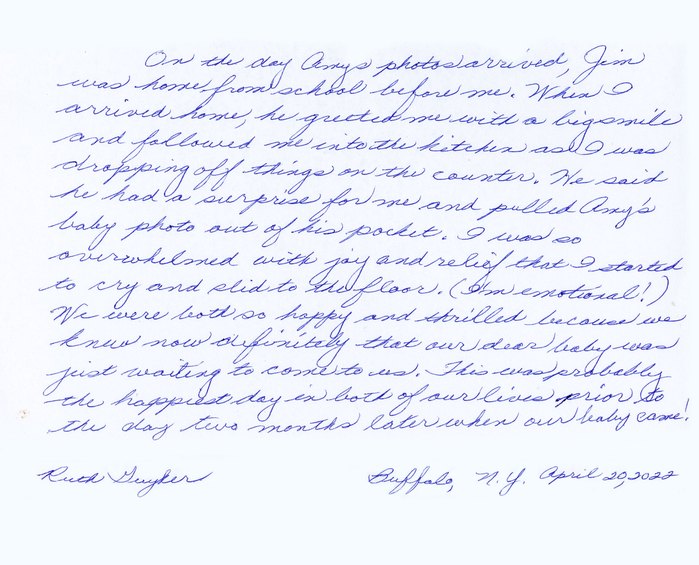 On the day Amy's photos arrived, Jim
was home from school before me. When I
arrived home, he greeted me with a big smile
and followed me into the kitchen as I was
dropping off things on the counter. He said
he had a surprise for me and pulled Amy's
baby photo out of his pocket. I was so
overwhelmed with joy and relief that I started
to cry and slid to the floor. (I'm emotional!)
We were both so happy and thrilled because we
knew now definitely that our dear baby was
just waiting to come to us. This was probably
the happiest day in both of our lives prior to
the day two months later when our baby came!
Ruth Guyker Buffalo, N.Y. April 20, 2022